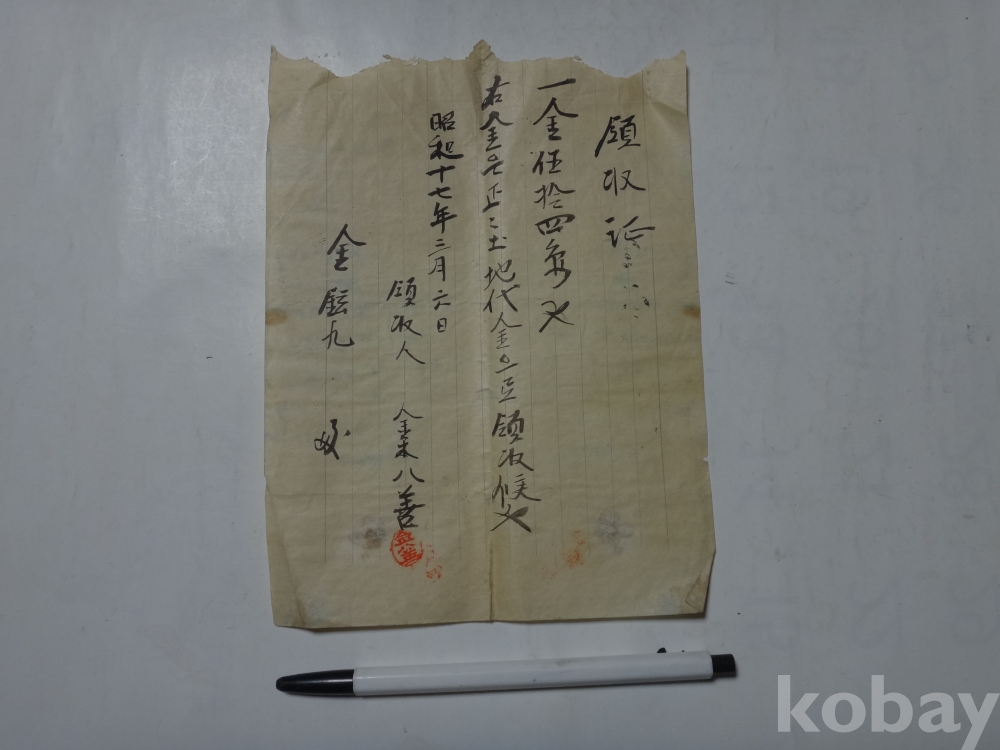 領收証
一金伍拾四円也
右金은正土地代金으로領收候也
昭和十七年三月六日
領收人 金本八善
金鉉九 殿
kobay